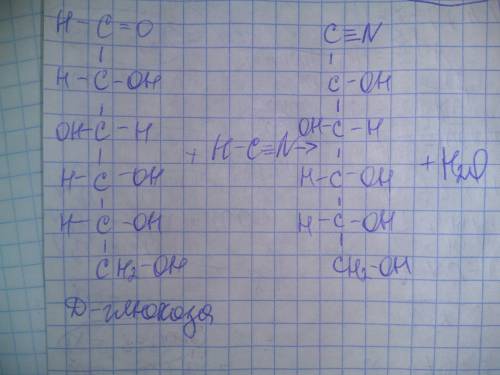 H-C=O
H-C-OH
OH-C-H
H-C-OH
H-C-OH
CH2-OH
Д-глюкоза
+ H-C≡N→
C≡N
C-OH
OH-C-H
H-C-OH
H-C-OH
CH2-OH
+H2O